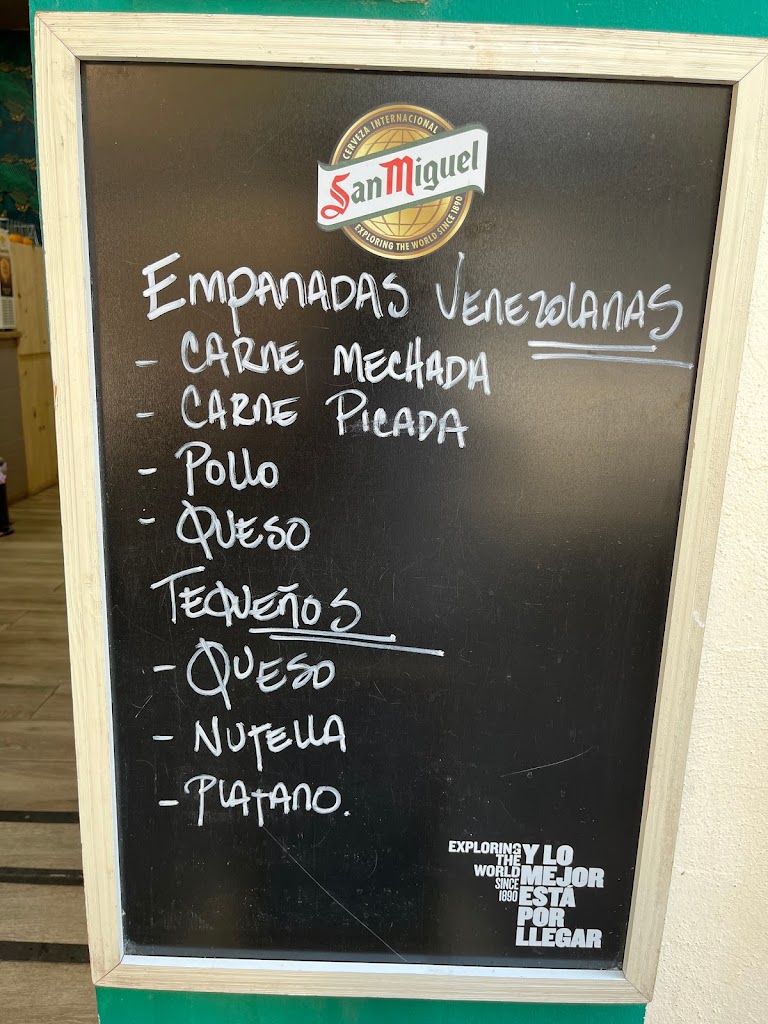 CERVEZA INTERNACIONAL
San Miguel
EXPLORING THE WORLD SINCE 1890
EMPANADAS VENEZOLANAS
- CARNE MECHADA
- CARNE PICADA
- POLLO
- QUESO
TEQUEÑOS
- QUESO
- NUTELLA
- PLATANO.
EXPLORING
THE
WORLD
SINCE
1890
Y LO
MEJOR
ESTÁ
POR
LLEGAR